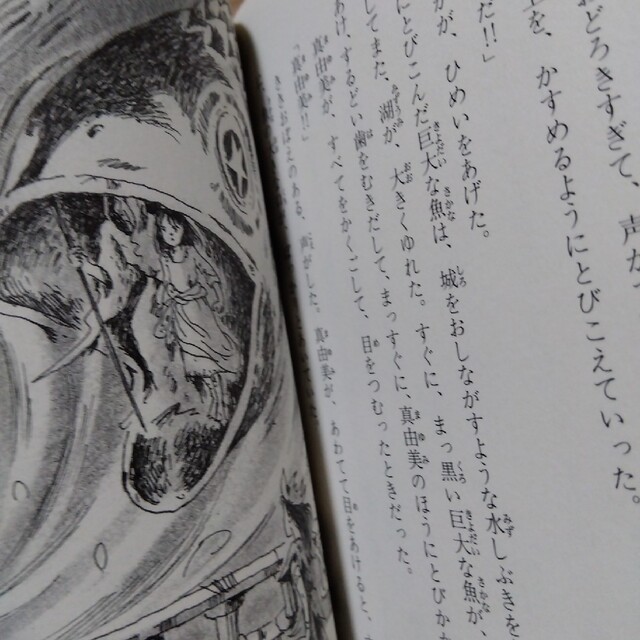 どろきすぎて、声が
を、かすめるようにとびこえていった。
だ!!」
が、ひめいをあげた。
にとびこんだ巨大な魚は、城をおしながすような水しぶきを
してまた、湖が、大きくゆれた。すぐに、まっ黒い巨大な魚が、
あけ、するどい歯をむきだして、まっすぐに、真由美のほうにとびか
真由美が、すべてをかくごして、目をつむったときだった。